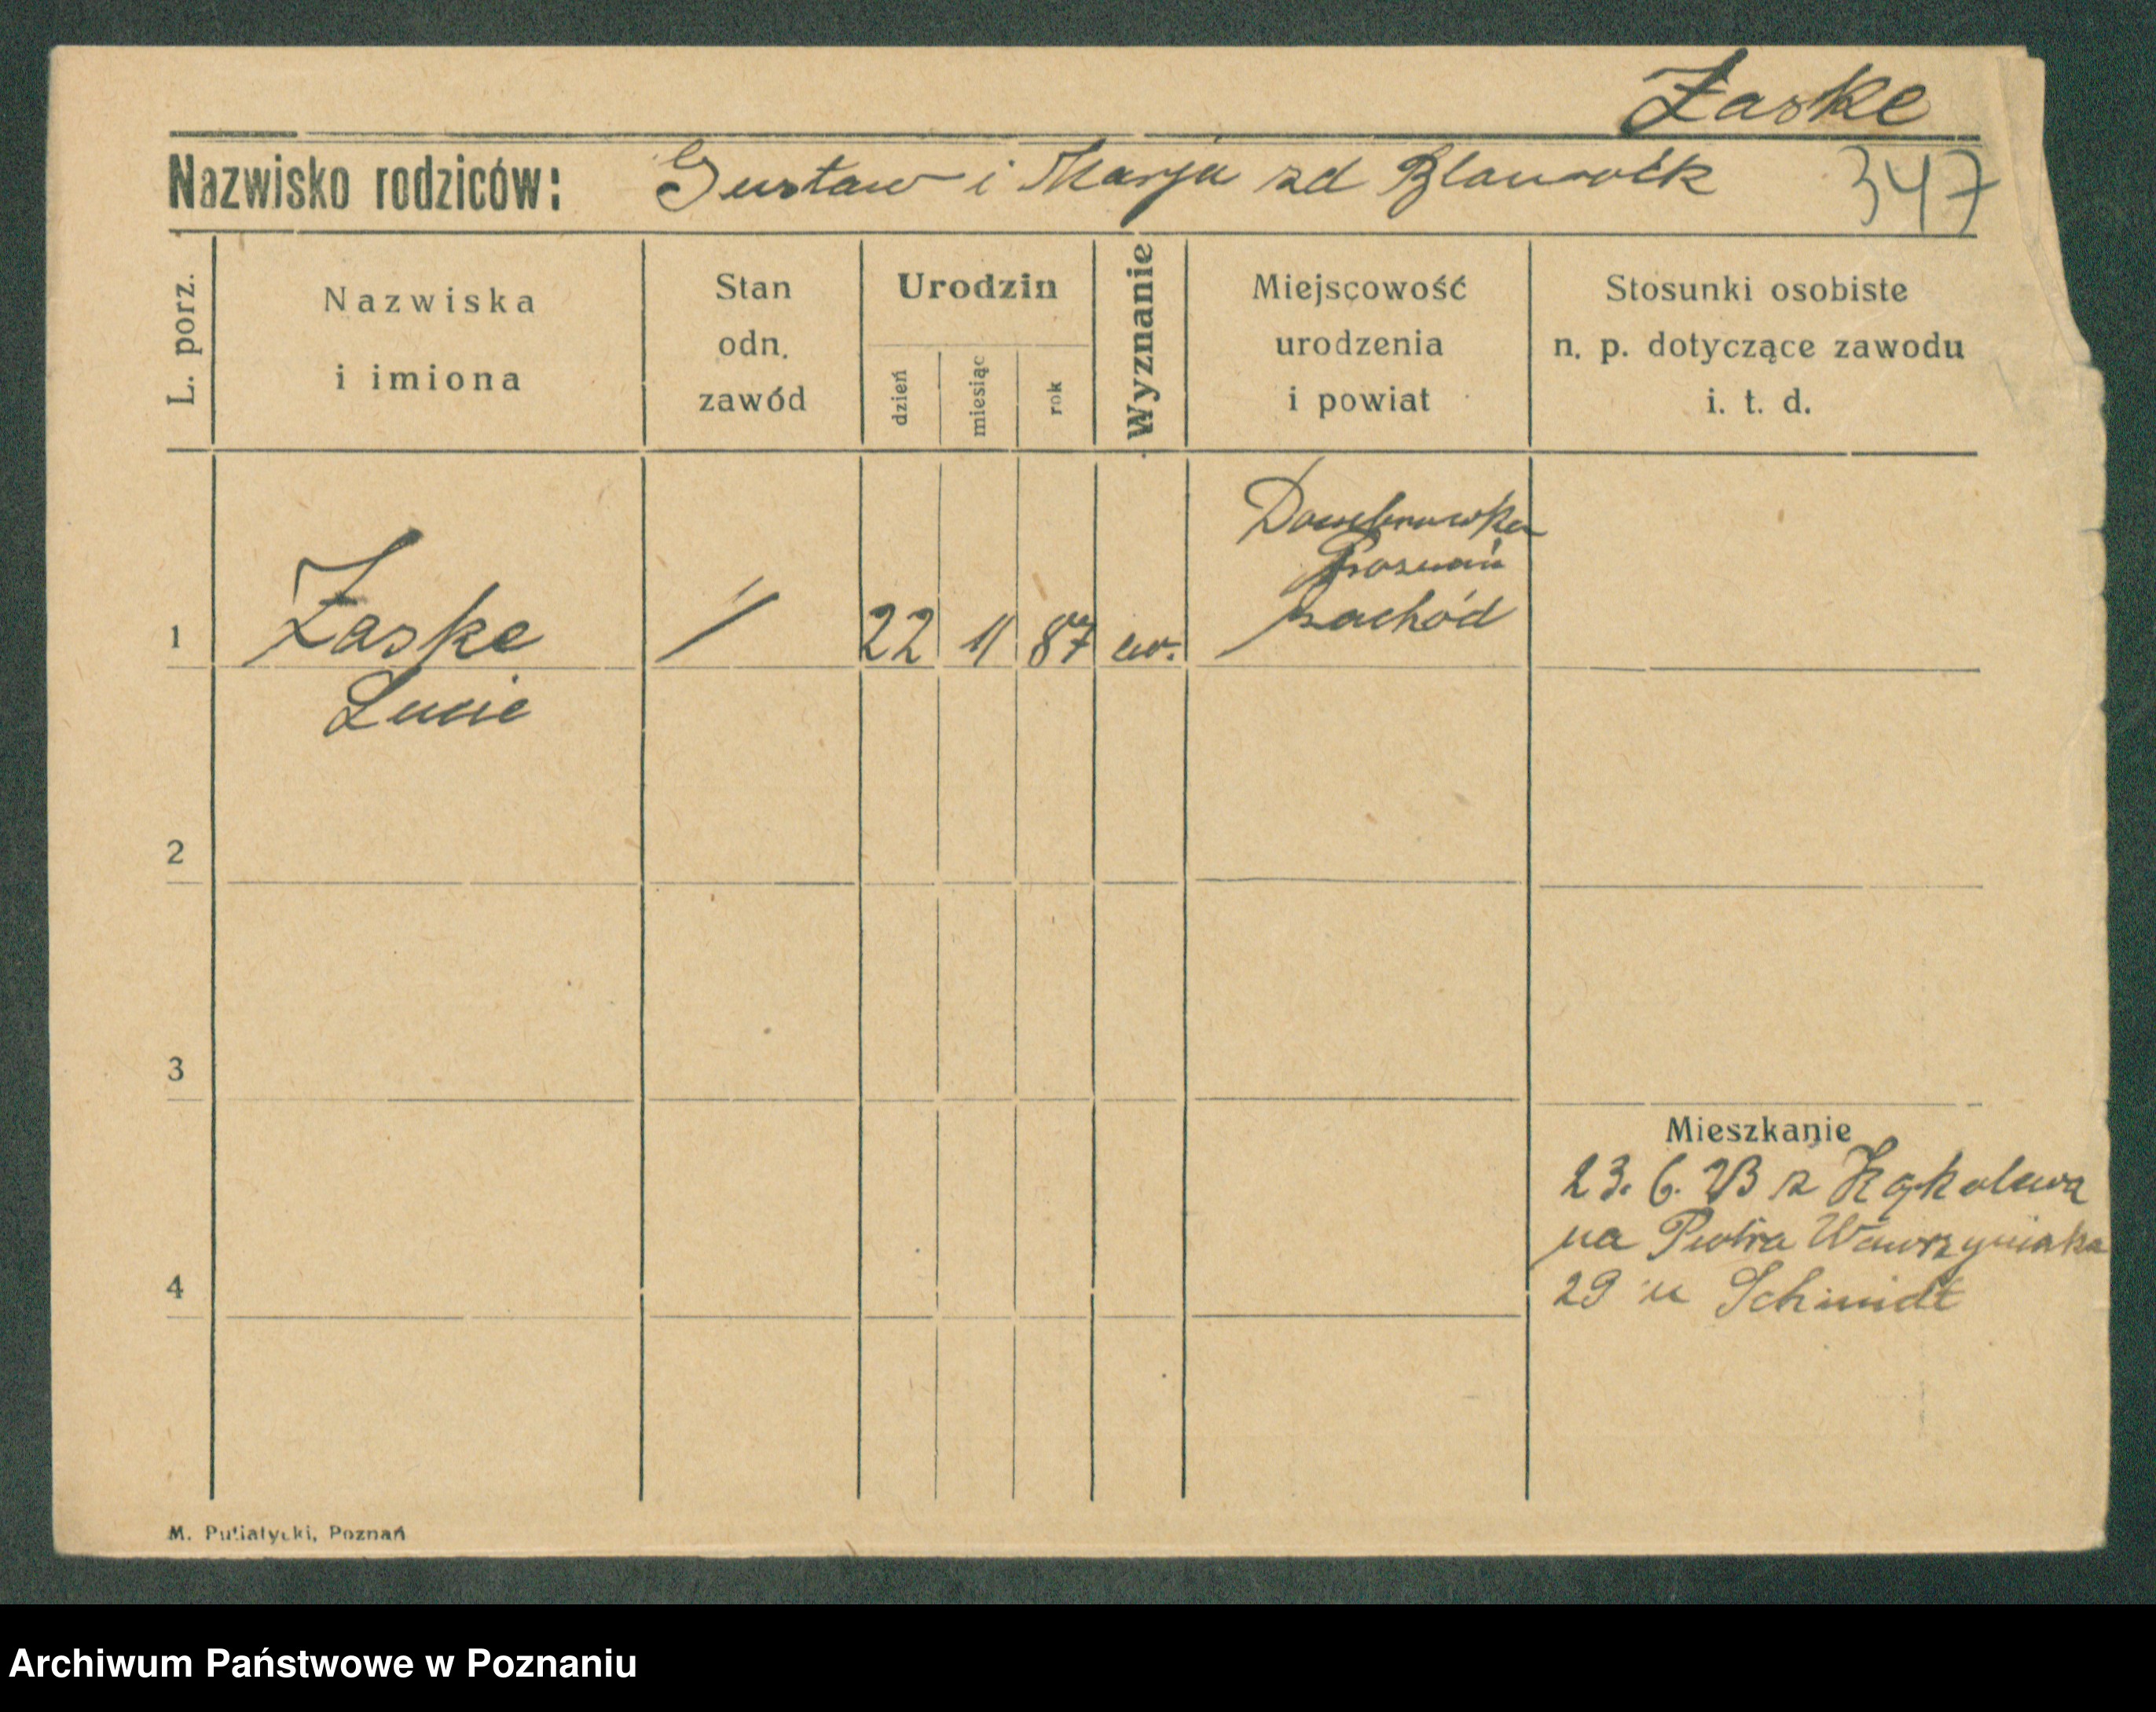 Zaske
Nazwisko rodziców: Gustaw i Marja zd 347
L. porz.
Nazwiska i imiona
Stan odn. zawód
Urodzin
dzień miesiąc rok
Wyznanie
Miejscowość urodzenia i powiat
Stosunki osobiste n. p. dotyczące zawodu i. t. d.
Poznań
1 Zaske / 22 11 87 ew. zachód
Lucie
2
3
Mieszkanie
23. 6. 23 z Kąkolewa
na Piotra Wawrzyniaka
4 29 u Schmidt
M. Putiatycki, Poznań
Archiwum Państwowe w Poznaniu